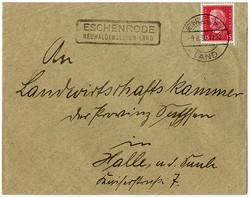 ESCHENRODE
NEUHALDENSLEBEN LAND
15 15
LAND
An
Landwirtschaftskammer
der Provinz Sachsen
in
Halle, a.d. Saale
Kaiserstraße 7.